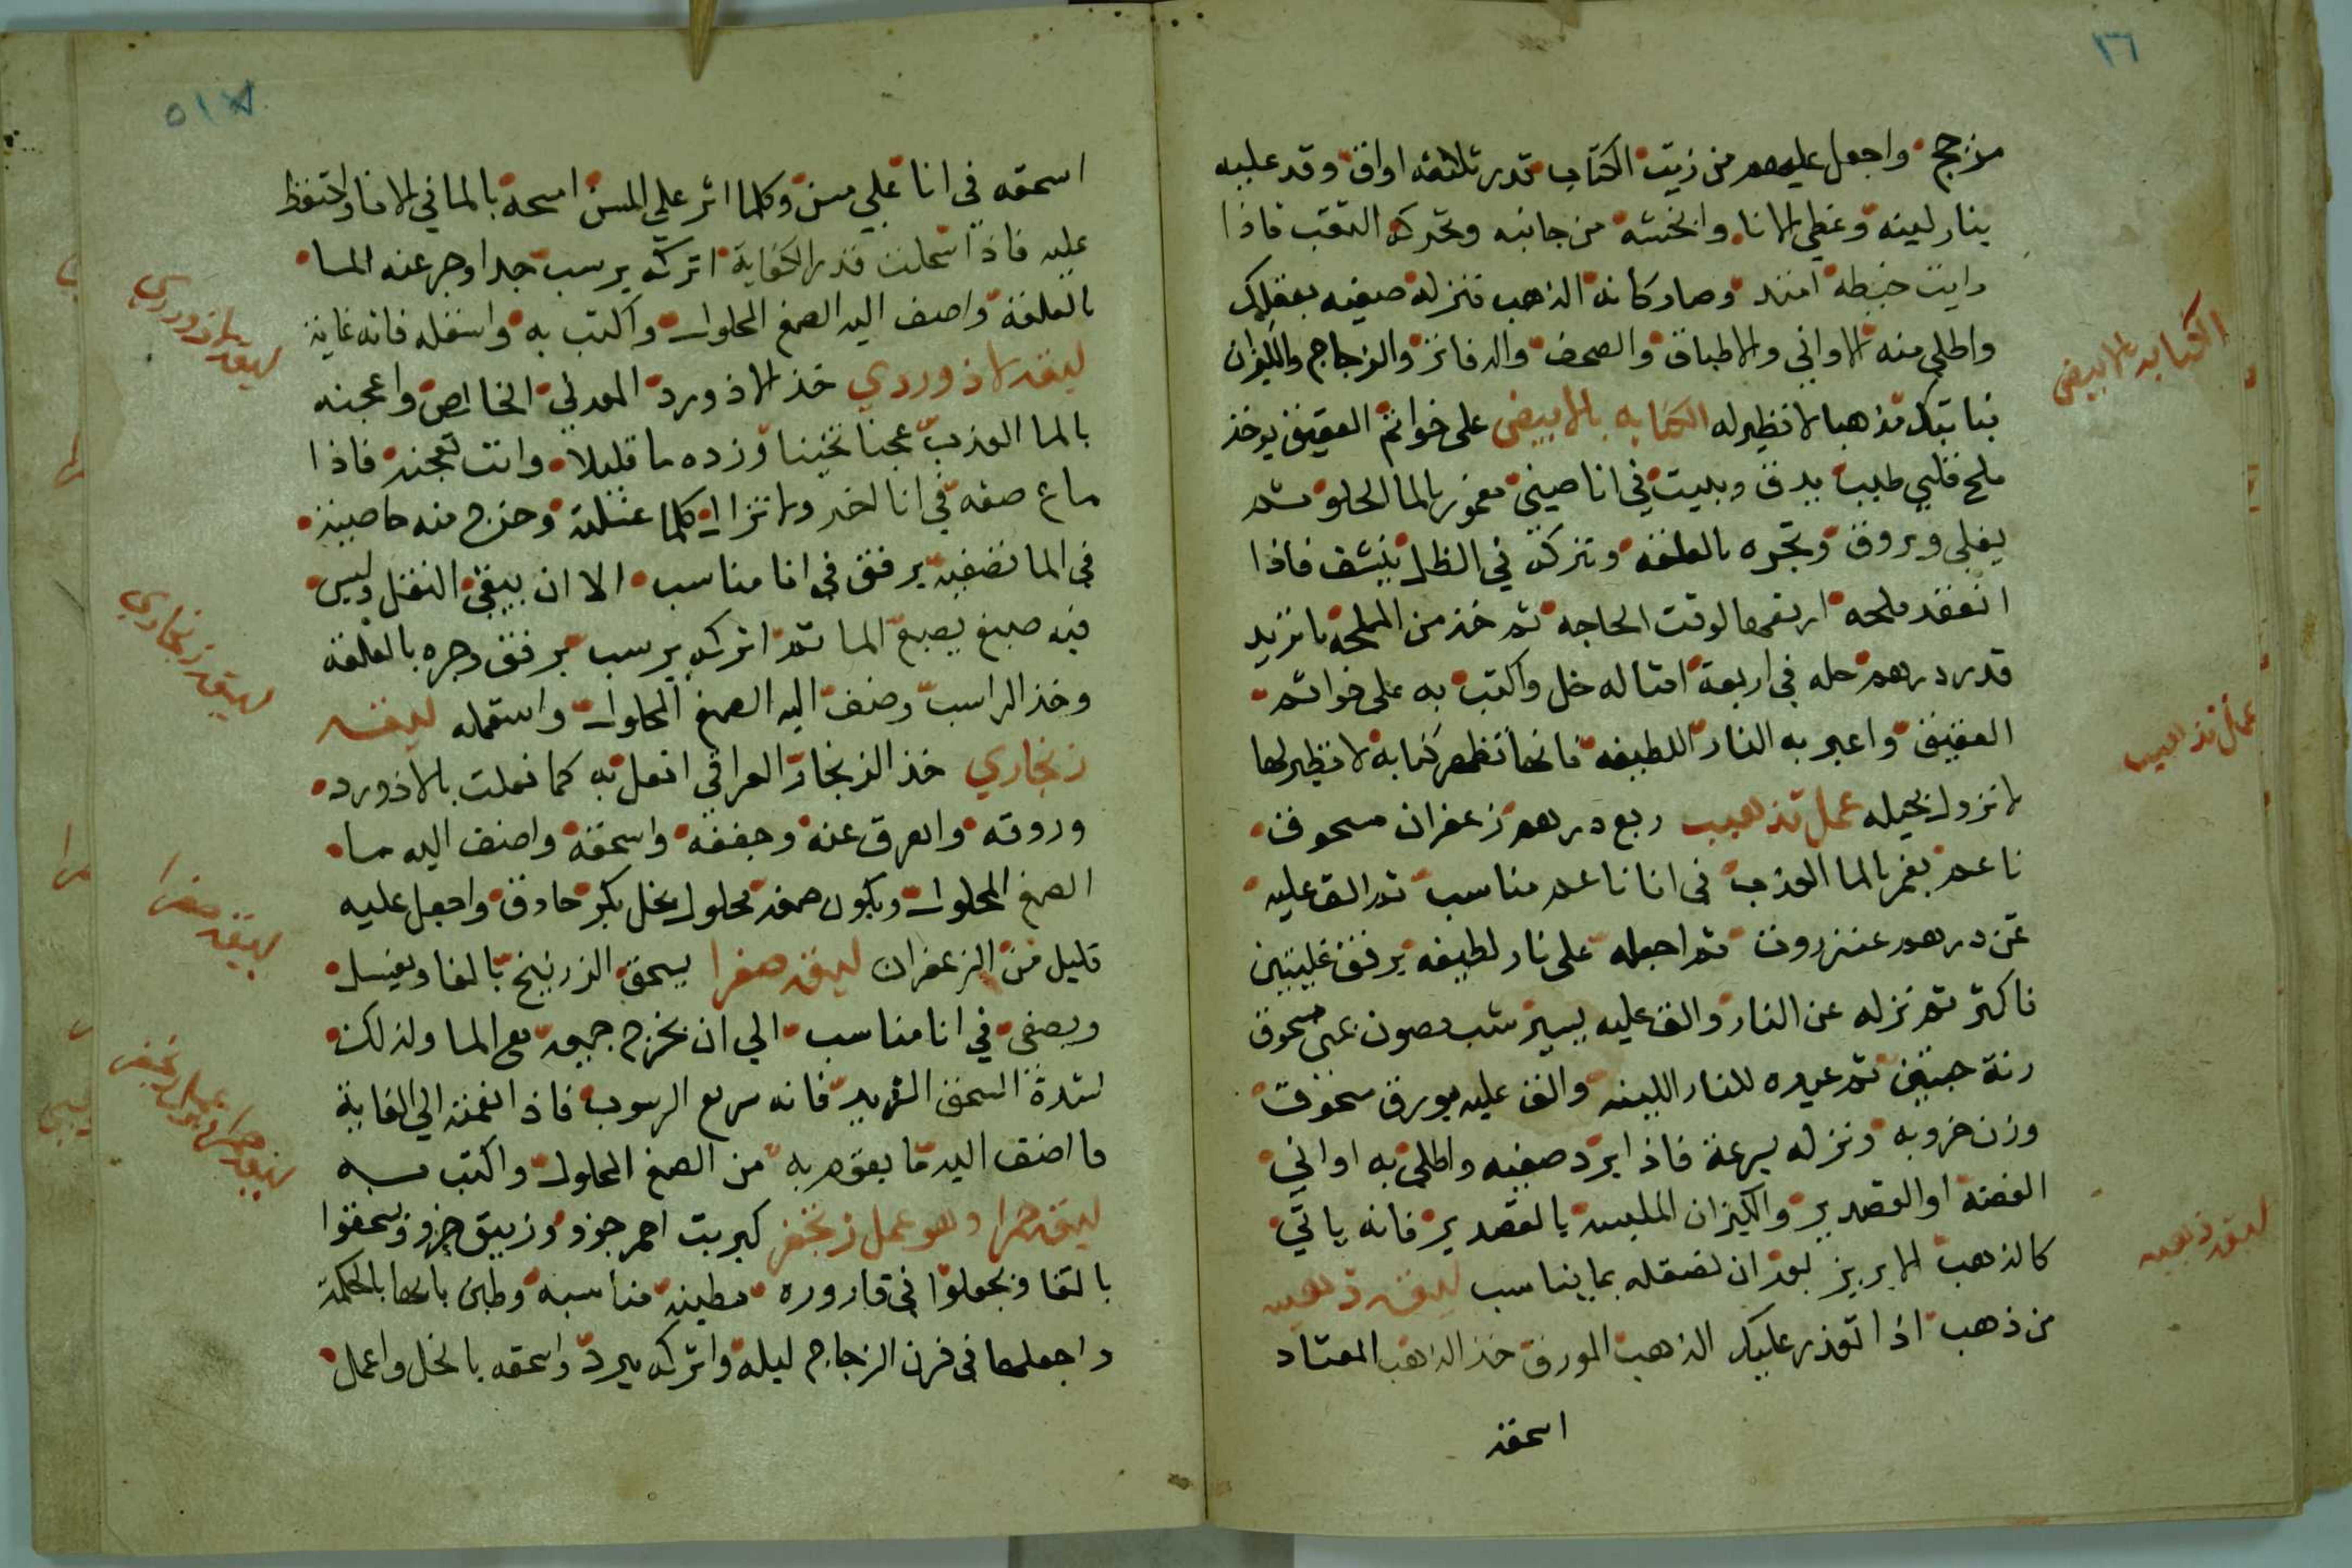 ١٦
مزجج واجعل عليهم من زيت الكتاب قدر ثلاثه اواق وقد عليه
بنار لينه وغطي الانا وانخشه من جانبه وتحركه التقب فاذا
رايت خيطه امتد وصار كانه الذهب فنزله صفيه بعقلك
واطلي منه الاواني والاطباق والصحف والدفاتر والزجاج والليزان
نباتيك مذهبا لا نظير له الكتابه بالابيض على خواتم العقيق يوخذ
ملح قلي طيب يدق ويبيت في انا صيني مغمور بالما الحلو ثم
يغلي ويروق وتجره بالعلقه وتتركه في الظل ينشف فاذا
انعقد ملحه ارفعها لوقت الحاجه ثم خذ من الملحه ما تريد
قدر درهم حله في اربعة امثاله خل واكتب به على خواتم
العقيق واعبر به النار اللطيفه فانها تظهر كتابة لا نظير لها
لا تزول بحيله عمل تذهيب ربع درهم زعفران مسحوق
ناعم يغمر بالما العذب في انا ناعم مناسب ثم الق عليه
ثمن درهم عنزروت ثم اجعله على نار لطيفه برفق غليتين
فاكثر ثم نزله عن النار والق عليه يسير شب مصون يمني مسحوق
زنة حبتين ثم عيده للنار اللينه والق عليه بورق مسحوق
وزن خروبه ونزله بسرعة فاذا ابرد صفيه واطلي به اواني
الفضة او القصدير والكيزان الملبسه بالقصدير فانه ياتي
كالذهب الابريز بعد ان تصقله بما يناسب ليقه ذهبيه
من ذهب اذا تعذر عليك الذهب المورق خذ الذهب المعتاد
اسحقه
الكتابه بالابيض
عمل تذهيب
ليقه ذهبيه
اسحقه في انا علي مسن وكلما اثر علي المسن امسحه بالما في الانا واحتفظ
عليه فاذا سحلت قدر الكفاية اتركه يرسب جيدا وجر عنه الما
بالعلقة واضف اليه الصمغ المحلول واكتب به واسقله فانه غاية
ليقه لاذوردي خذ الاذورد المعدني الخالص واعجنه
بالما العذب عجنا ثخينا وزده ما قليلا وانت تعجنه فاذا
ماع صفه في انا اخر ولا تزال كلما غسلته وخرج منه صبيغه
في الما تضفيه برفق في انا مناسب الا ان يبقي الثفل وليس
فيه صبغ يصبغ الما ثم اتركه يرسب برفق وجره بالعلقه
وخذ الراسب وضف اليه الصمغ المحلول واستعمله ليقه
زنجاري خذ الزنجار العراقي افعل به كما فعلت بالاذورد
وروقه والعرق عنه وجففه واسحقه واضف اليه ما
الصمغ المحلول ويكون صمغه محلول بخل بكر حادق واجعل عليه
قليل من الزعفران ليقه صفرا يسحق الزرنيخ بالما ويغسل
ويصفى في انا مناسب الي ان يخرج جميعه مع الما ولذلك
لشدة السحق الشديد فانه سريع الرسوب فاذا انعمته الي الغاية
ما اضف اليه ما يقوم به من الصمغ المحلول واكتب به
ليقه حمرا وهو عمل زنجفر كبريت احمر جزو وزيبق جزو وتسحقوا
بالتقا وتجعلوا في قاروره مطينه مناسبه وطين بابها بالحكمة
واجعلها في فرن الزجاج ليله واتركه يبرد واسحقه بالخل واعمل
ليقه لاذوردي
ليقه زنجاري
ليقه صفرا
ليقه حمرا وهو عمل زنجفر